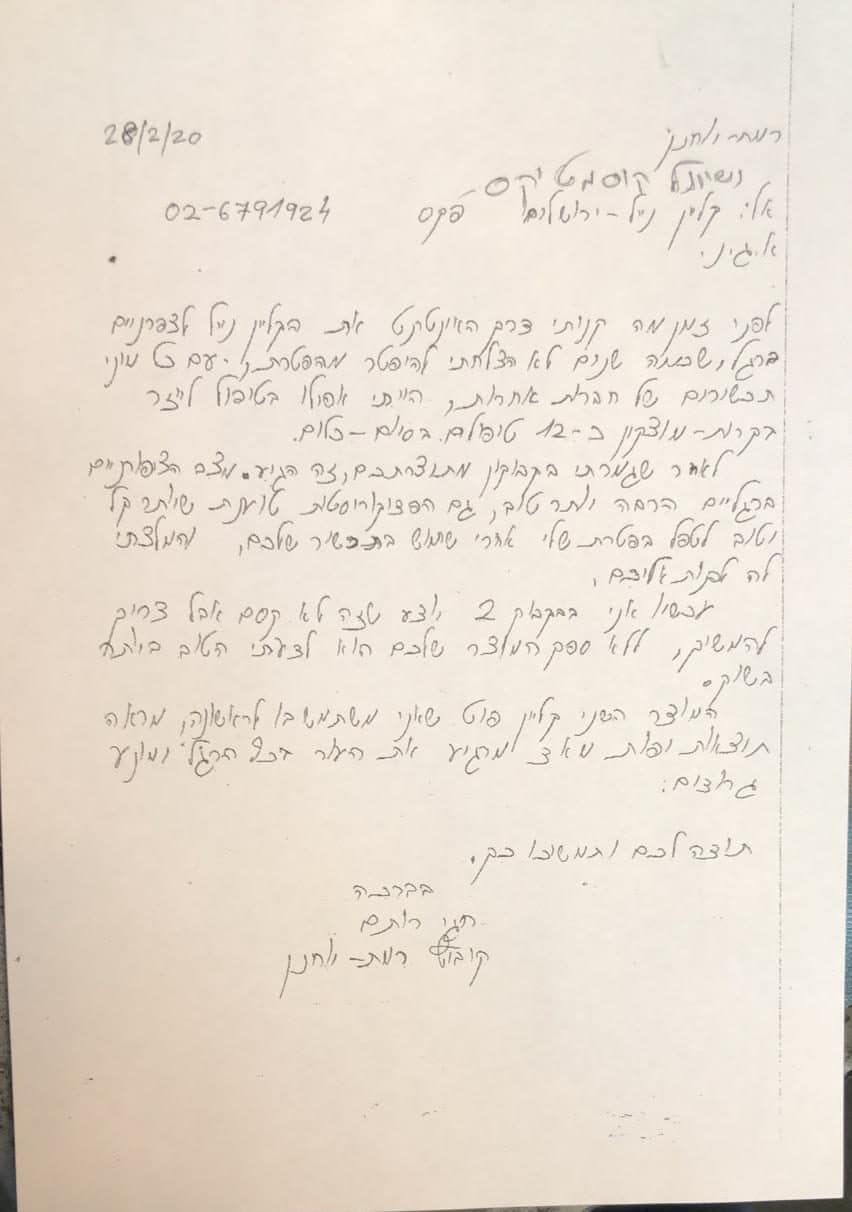 רמת-יוחנן 28/2/20
נשיונל קוסמטיקס
אל: קלין נייל-ירושלים פקס 02-6791924
א.ג.נ.
לפני זמן מה קניתי דרך האינטרנט את הקליין נייל לצפרניים
ברגל, שכמה שנים לא הצלחתי להיפטר מהפטרת, עם כל מיני
תכשירים של חברות אחרות, הייתי אפילו בטיפול לייזר
בקרית-מוצקין כ-12 טיפולים. בסיום-כלום.
לאחר שגמרתי בקבוקון מתוצרתכם, זה הגיע. מצב הציפורניים
ברגליים הרבה יותר טוב, גם הפדיקוריסטית טוענת שיותר קל
וטוב לטפל בפטרת שלי אחרי שמוש בתכשיר שלכם, והמלצתי
לה לפנות אליכם.
עכשיו אני בבקבוק 2 יודע שזה לא קסם אבל צריך
להמשיך, ללא ספק המוצר שלכם הוא לדעתי הטוב ביותר
בשוק.
המוצר השני קליין פוט שאני משתמש בו לראשונה, מראה
תוצאות יפות מאד מרגיע את העור בכף הרגל ומונע
גרודים.
תודה לכם ותמשיכו כך.
בברכה
חגי רותם
קיבוץ רמת-יוחנן